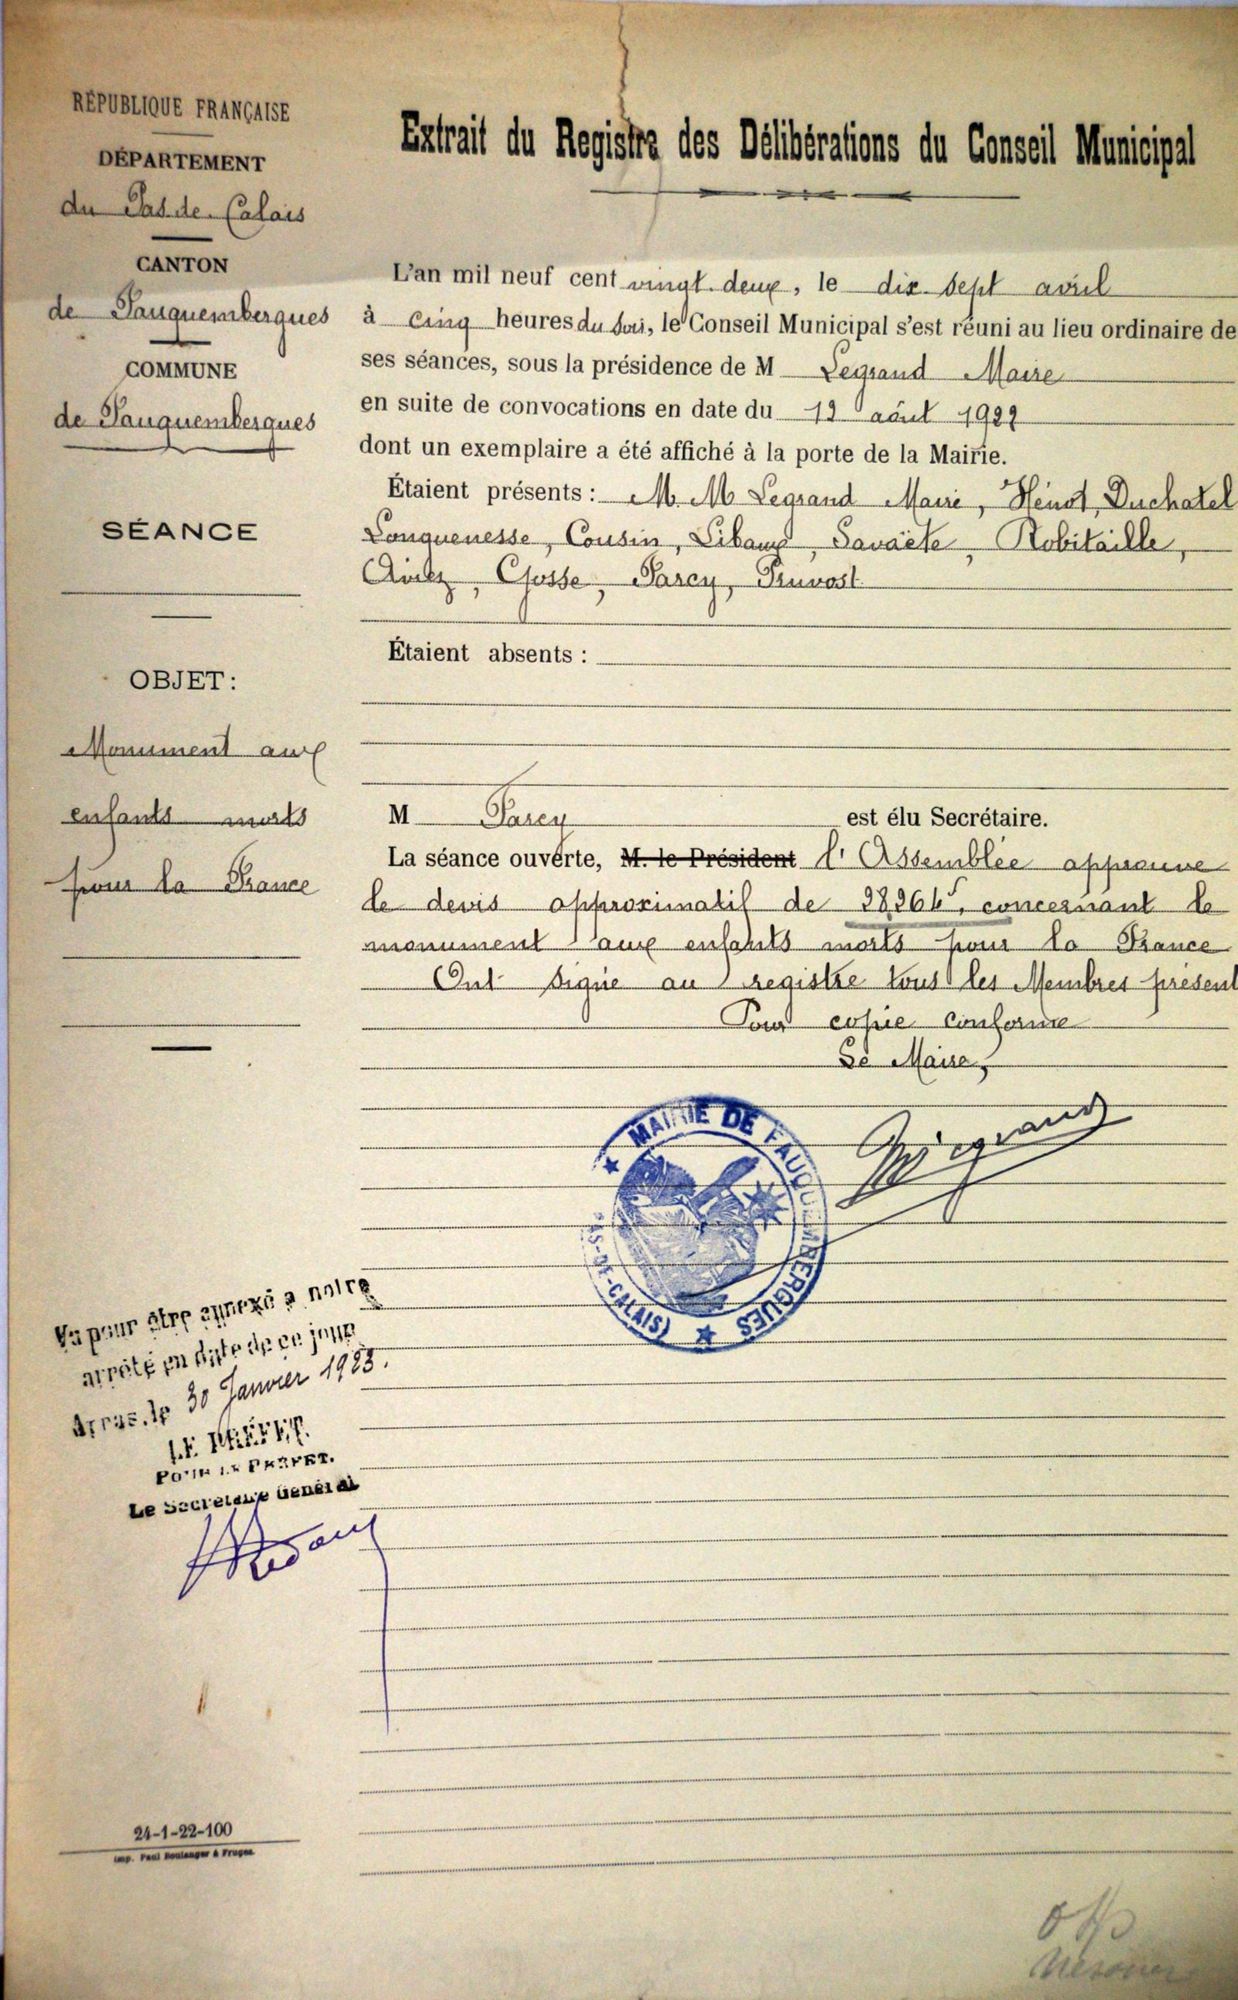 RÉPUBLIQUE FRANÇAISE
DÉPARTEMENT
du Pas de Calais
CANTON
de Fauquembergues
COMMUNE
de Fauquembergues
SÉANCE
OBJET:
Monument aux
enfants morts
pour la France
Extrait du Registre des Délibérations du Conseil Municipal
L'an mil neuf cent vingt deux, le dix sept avril
à cinq heures du soir, le Conseil Municipal s'est réuni au lieu ordinaire de
ses séances, sous la présidence de M Legrand Maire
en suite de convocations en date du août
dont un exemplaire a été affiché à la porte de la Mairie.
Étaient présents : M. M Legrand Maire, Hénot, Duchatel
Longuenesse, Cousin, Libaux, Savaëte, Robitaille,
Gosse, Parcy, Pruvost
Étaient absents :
M Parcy est élu Secrétaire.
La séance ouverte, M. le Président l'Assemblée approuve
le devis approximatif de concernant le
monument aux enfants morts pour la France
Ont signé au registre tous les Membres présent
Pour copie conforme
Le Maire,
MAIRIE DE FAUQUEMBERGUES
(PAS-DE-CALAIS)
Vu pour être annexé à notre
arrêté en date de ce jour
Arras, le 30 Janvier 1923.
LE PRÉFET.
POUR LE PRÉFET.
Le Secrétaire Général
24-1-22-100
Imp. Paul Boulanger à Fruges